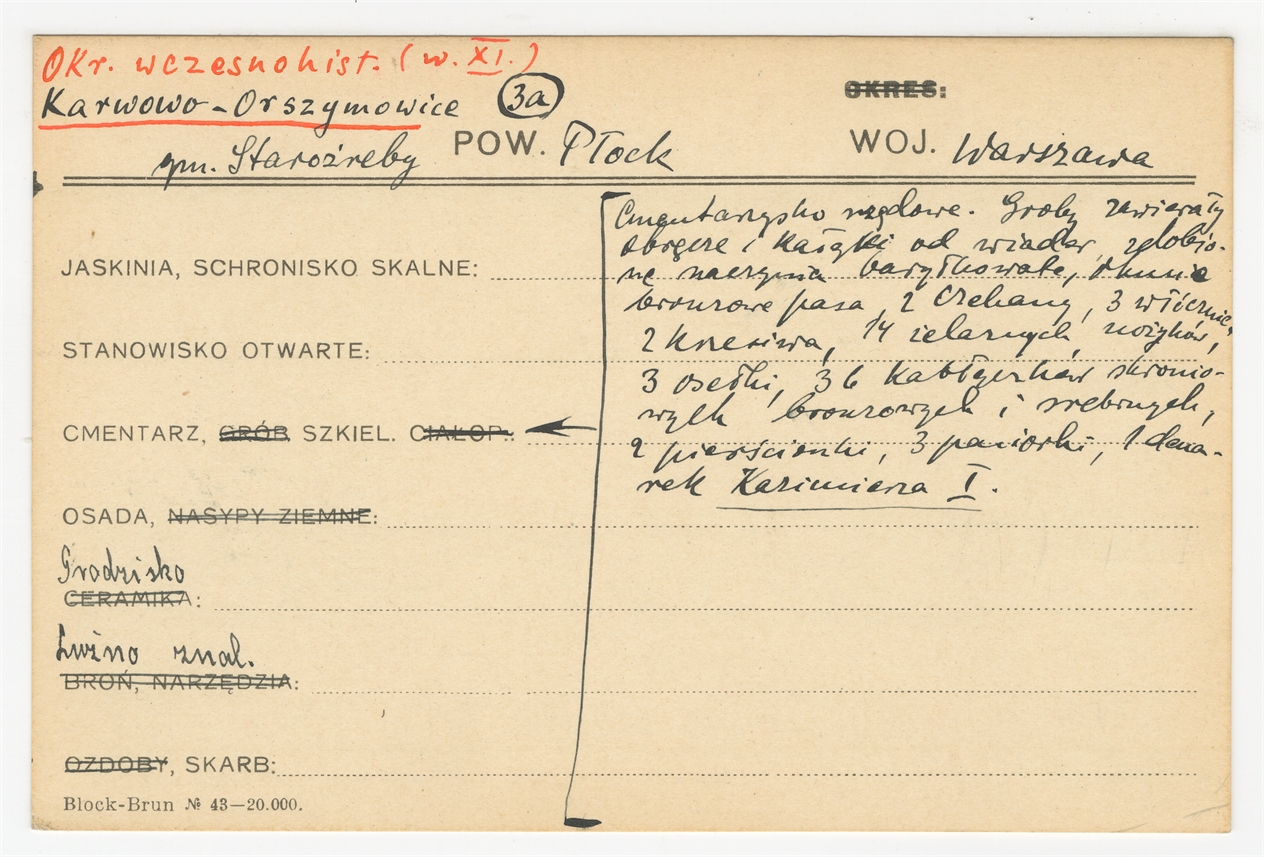 Okr. wczesnohist. (w. XI.)
Karwowo-Orszymowice 3a
OKRES:
gm. Staroźreby POW. Płock WOJ. Warszawa
Cmentarzysko rzędowe. Groby zawierały
obręcze i kabłąki od wiader, zdobio-
ne naczynia baryłkowate, okucie
bronzowe pasa, 2 czekany, 3 włócznie,
2 krzesiwa, 14 żelaznych nożyków,
3 osełki, 36 kabłączków skronio-
wych bronzowych i srebrnych,
2 pierścionki, 3 paciorki, 1 dena-
rek Kazimierza I.
JASKINIA, SCHRONISKO SKALNE:
STANOWISKO OTWARTE:
CMENTARZ, GRÓB SZKIEL. CIAŁOP.:
OSADA, NASYPY ZIEMNE:
Grodzisko
CERAMIKA:
Luźno znal.
BROŃ, NARZĘDZIA:
OZDOBY, SKARB:
Block-Brun № 43—20.000.